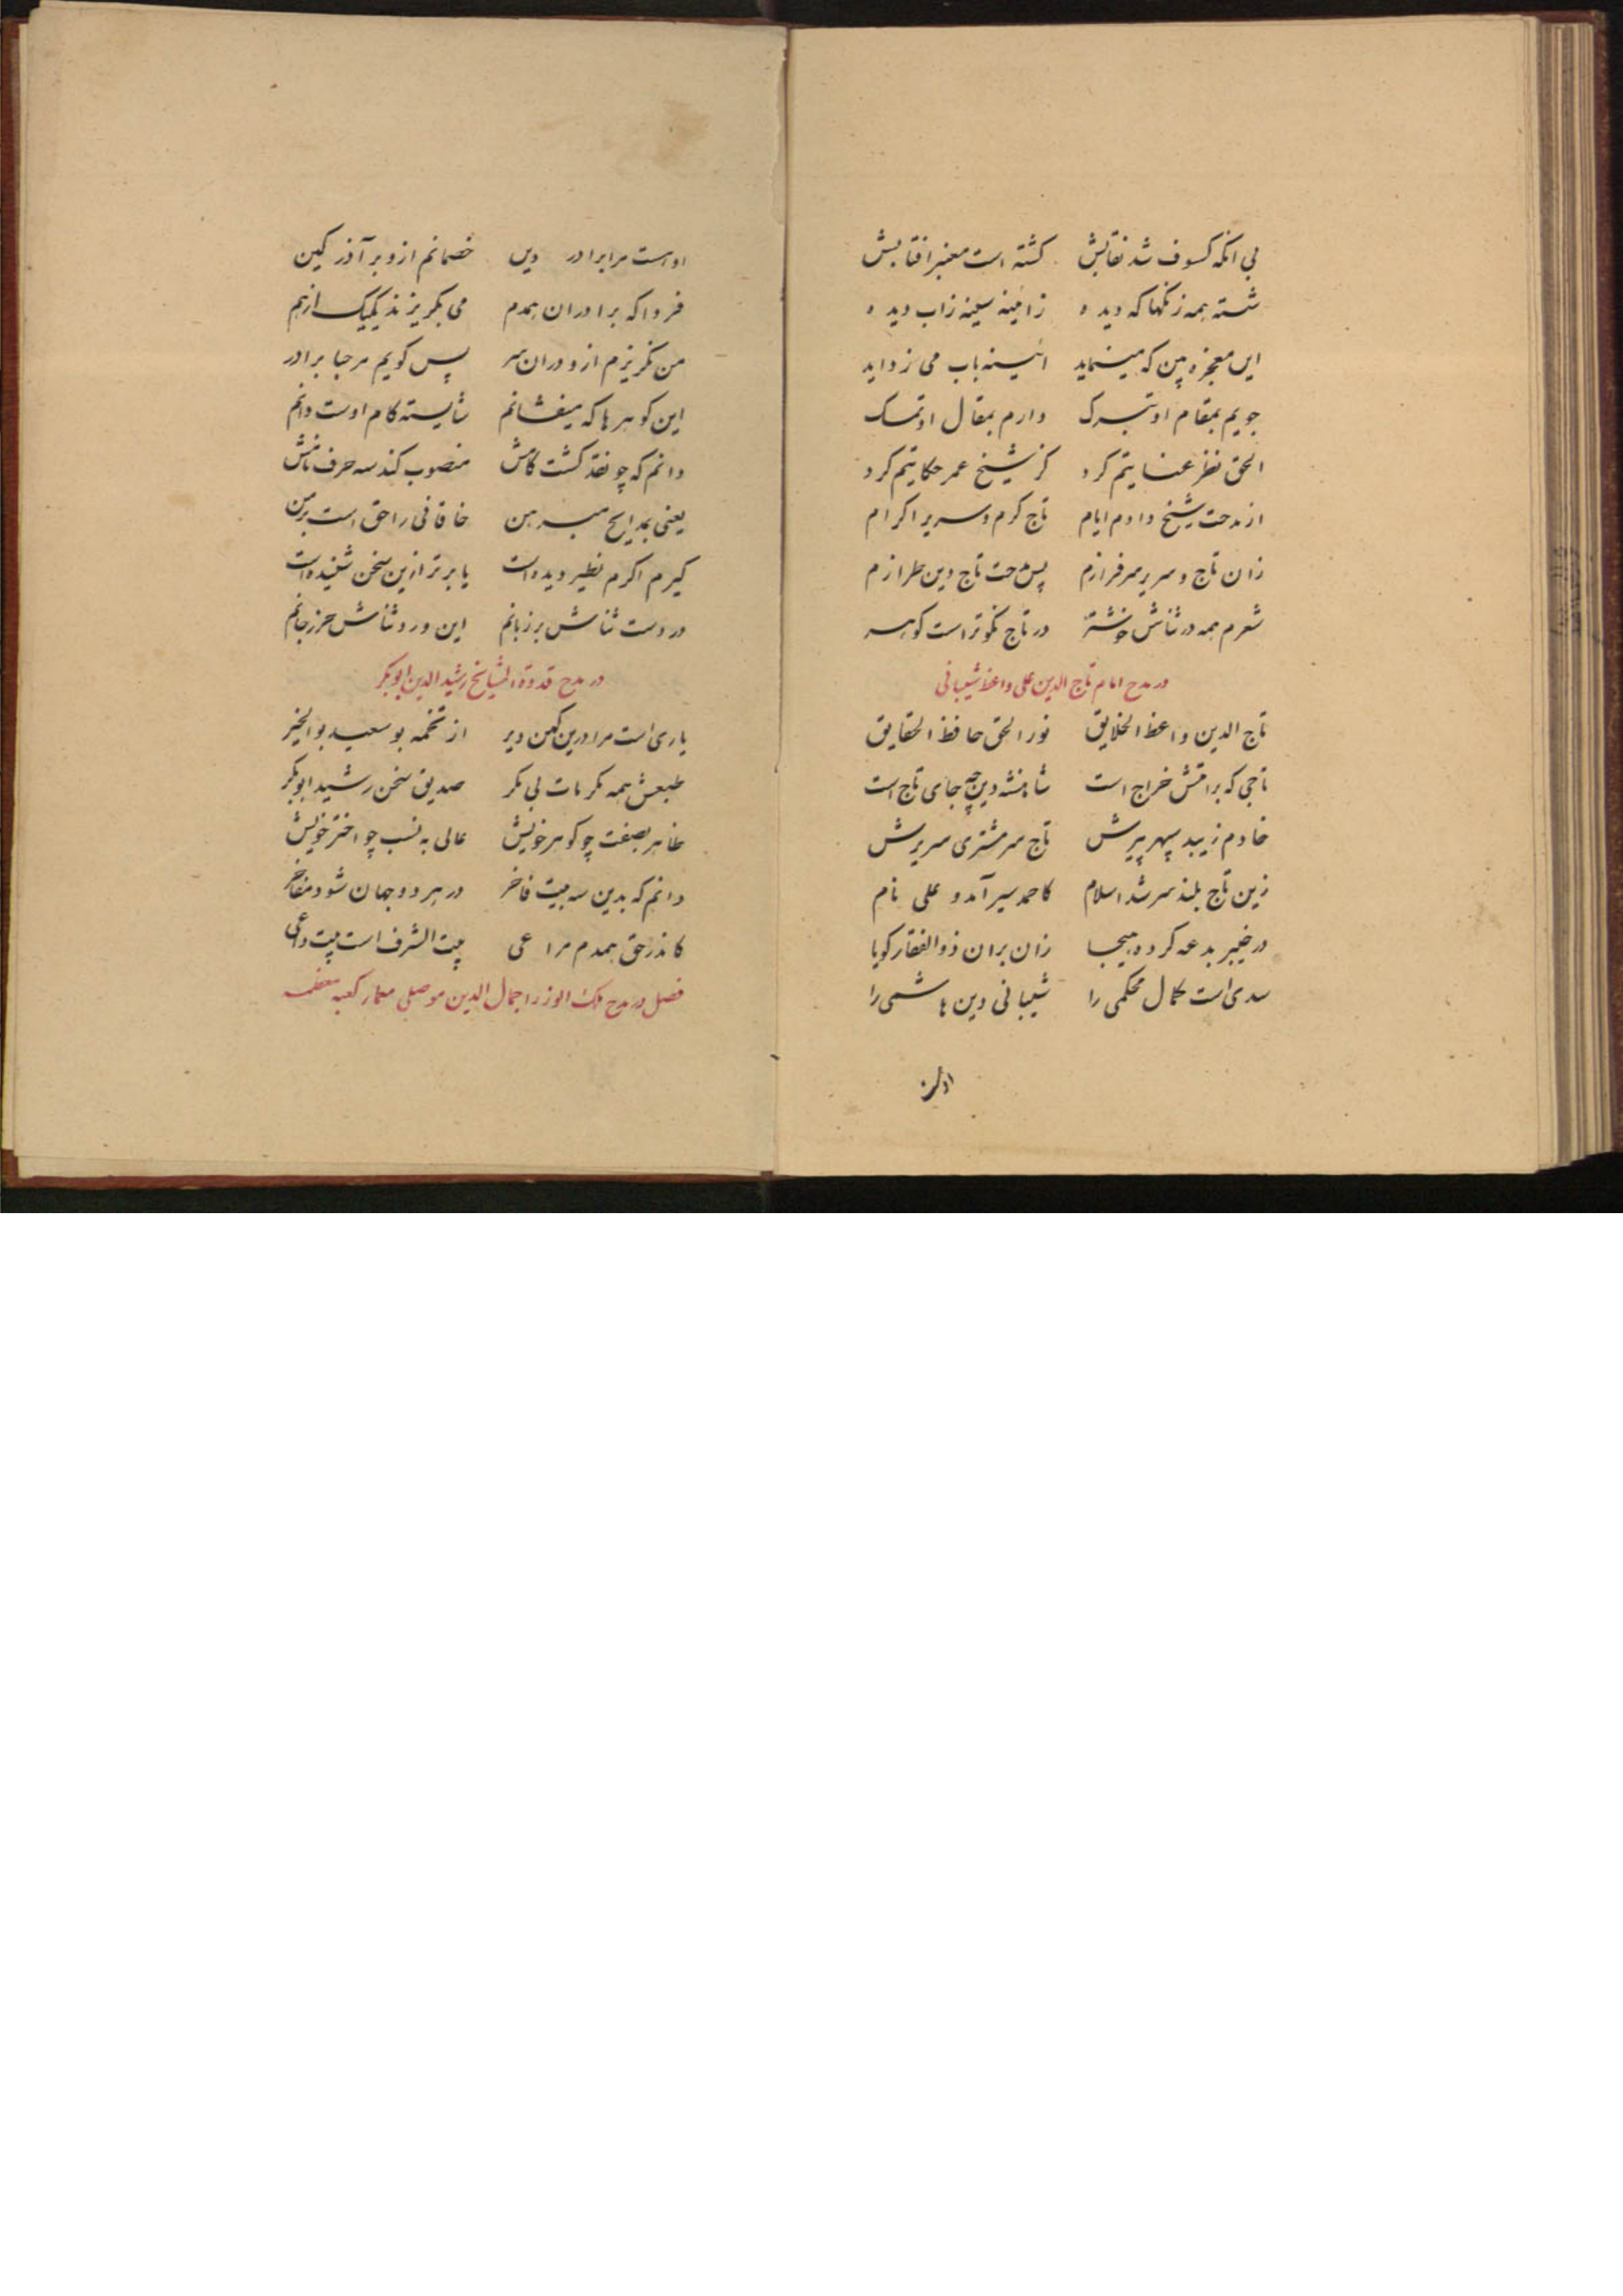 بی انکه کسوف شد نقابش کشته است مغبر افتابش
شسته همه زنکها که دیده زائینه سینه زاب دیده
این معجزه بین که مینماید ائینه باب می زداید
جویم بمقام او تبرک دارم بمقال او تمسک
الحق نظر عنایتم کرد کز شیخ عمر حکایتم کرد
از مدحت شیخ دادم ایام تاج کرم و سریر اکرام
زان تاج و سریر سرفرازم پس مدحت تاج دین طرازم
شعرم همه در ثناش خوشتر در تاج نکوتر است کوهر
در مدح امام تاج الدین علی واعظ شیبانی
تاج الدین واعظ الخلایق نور الحق حافظ الحقایق
تاجی که براقتش خراج است شاهنشه دین چه جای تاج است
خادم زیبد سپهر پیرش تاج سر مشتری سریرش
زین تاج بلند سر شد اسلام کاحمد سیر آمد و علی نام
در خیبر بدعه کرده هیجا زان بران ذوالفقار کویا
سدی است کمال محکمی را شیبانی دین هاشمی را
اوست مرا برادر دین خصمانم ازو بر آذر کین
فردا که برادران همدم می بکریزند یکیک از هم
من نکریزم ازو دران سر پس کویم مرحبا برادر
این کوهرها که میفشانم شایسته کام اوست دانم
دانم که چو نقد کشت کامش منصوب کند سه حرف نامش
یعنی بمدایح مبرهن خاقانی را حق است بر من
کیرم اکرم نظیر دیده است یا برتر ازین سخن شنیده است
در دست ثناش بر زبانم این ورد و ثناش حرز جانم
در مدح قدوة المشایخ رشید الدین ابوبکر
یاری است مرا درین کهن دیر از تخمه بو سعید بو الخیر
طبعش همه مکرمات بی مکر صدیق سخن رشید ابوبکر
ظاهر بصفت چو کوهر خویش عالی به نسب چو اختر خویش
دانم که بدین سه بیت فاخر در هر دو جهان شود مفاخر
کاندر حق همدم مراعی بیت الشرف است بیت داعی
فصل در مدح ملک الوزرا جمال الدین موصلی معمار کعبه معظمه